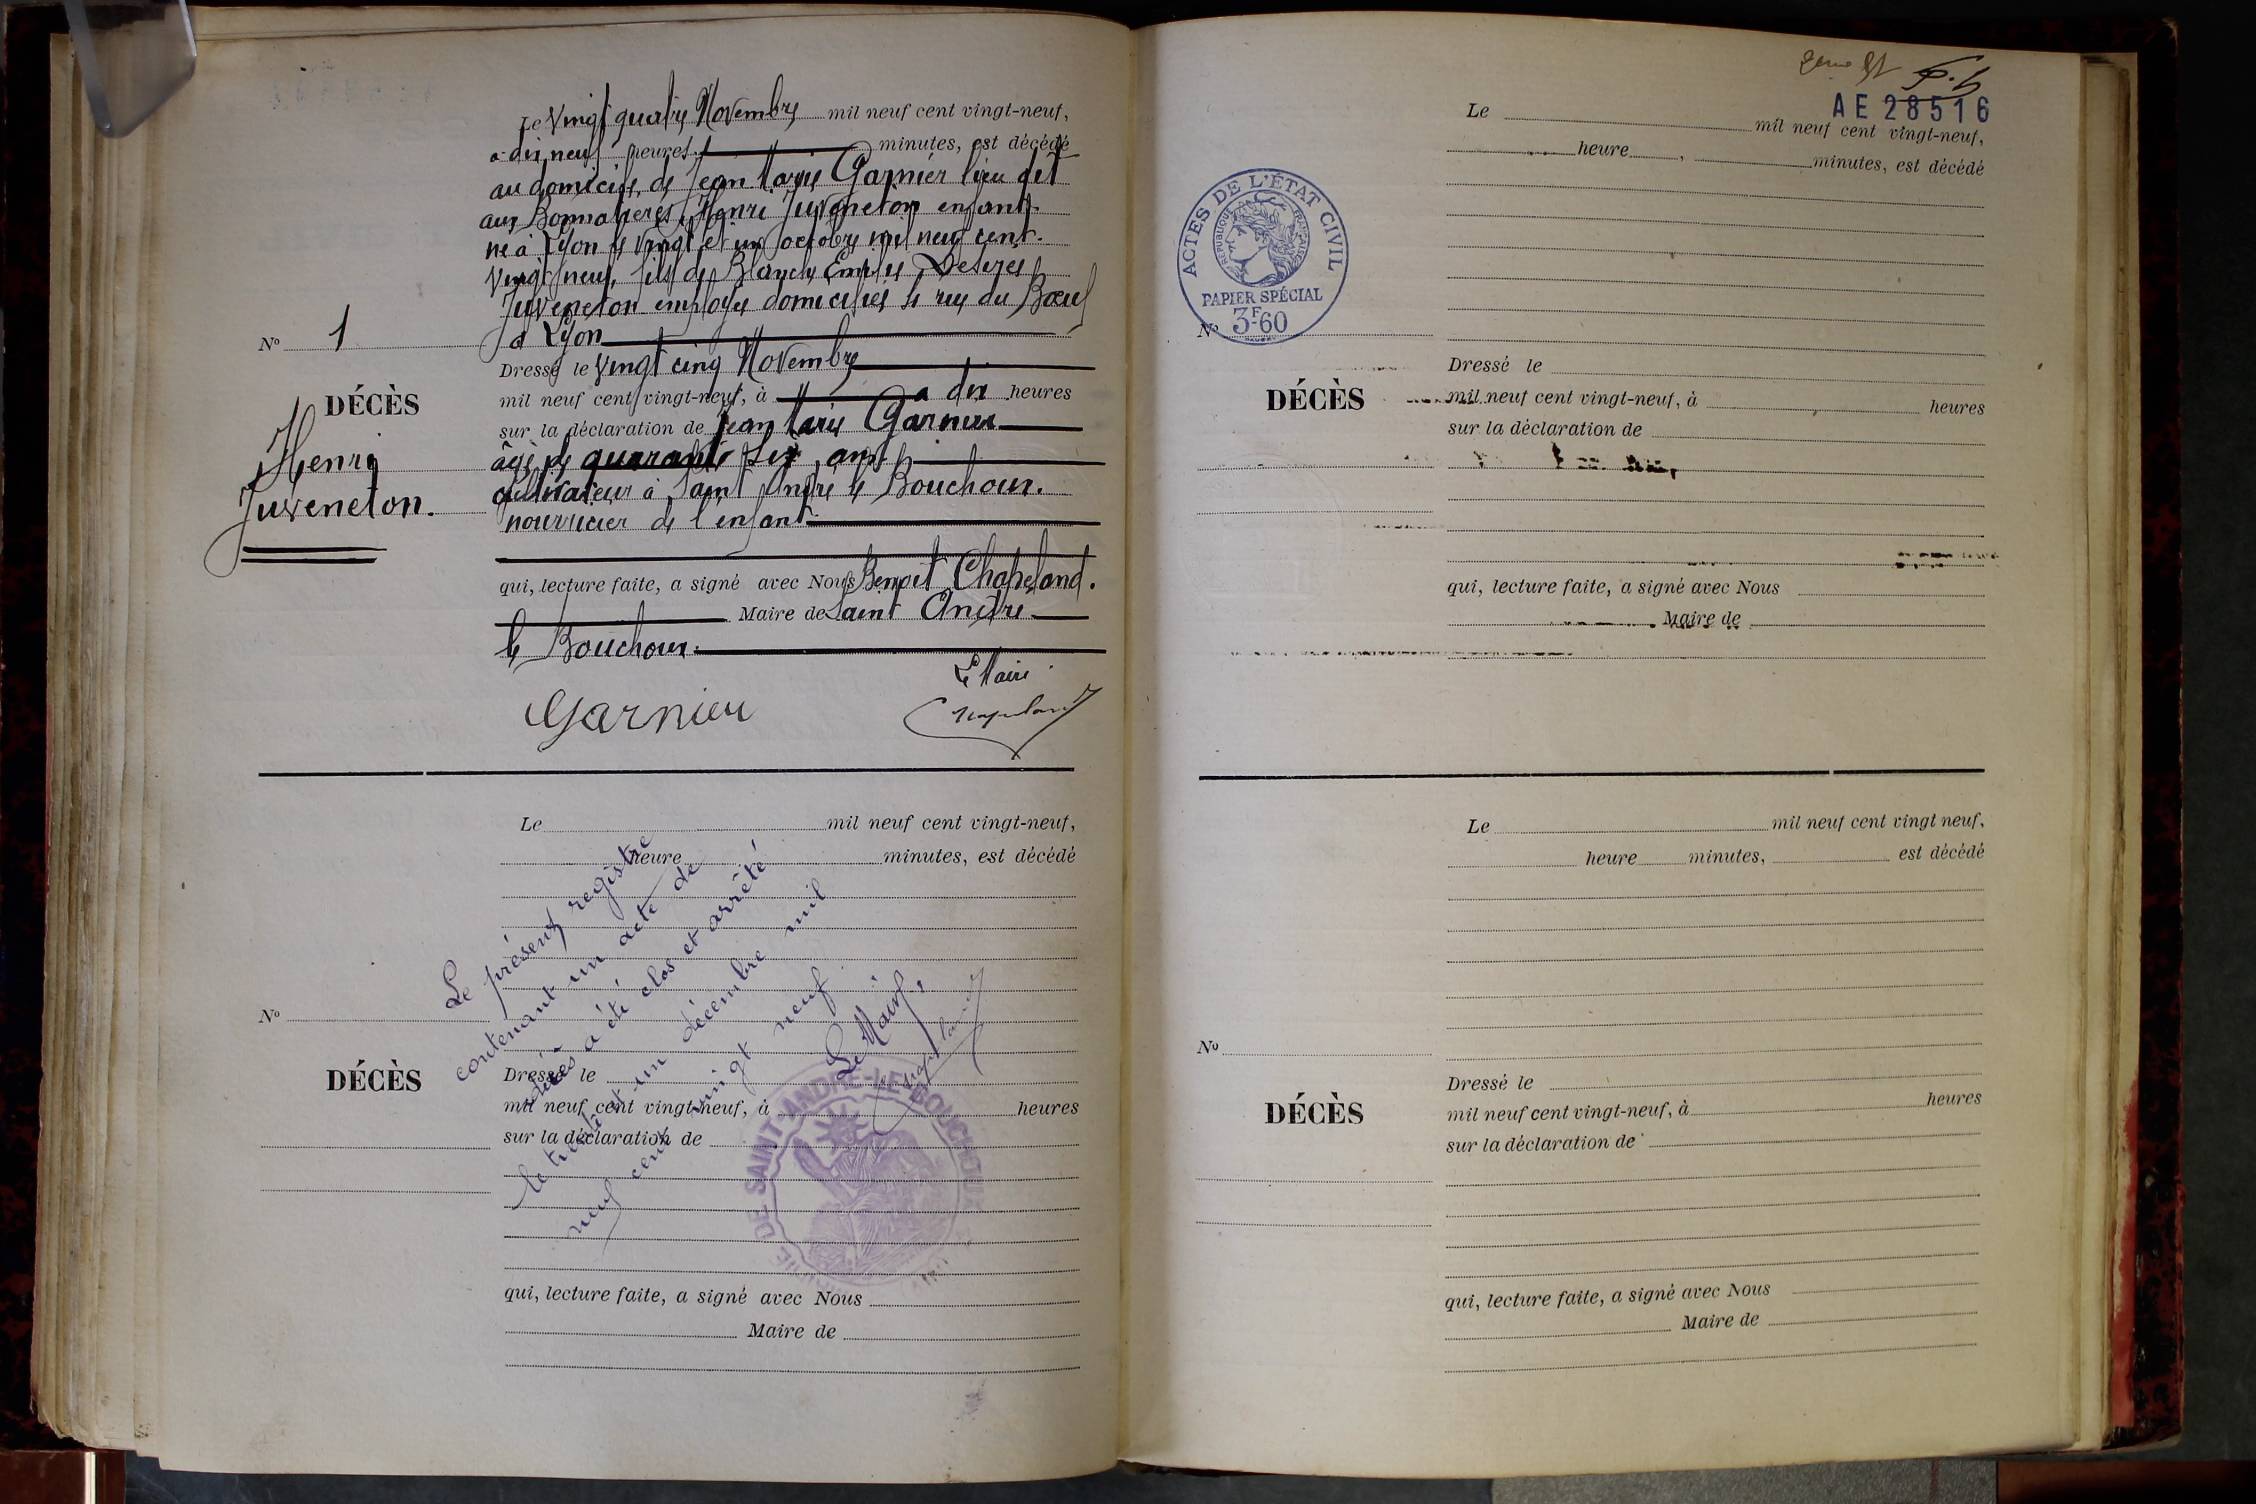 Le Vingt quatre Novembre mil neuf cent vingt-neuf,
a dix neuf heures minutes, est décédé
au domicile de Jean Marie Garnier lieu dit
aux Henri Juveneton enfant
né à Lyon le vingt et un octobre mil neuf cent
vingt neuf, fils de Blanche
Juveneton employée domiciliée rue du Bœuf
a Lyon
Nº 1
DÉCÈS
Henri
Juveneton.
Dressé le Vingt cinq Novembre
mil neuf cent vingt-neuf, à a dix heures
sur la déclaration de Jean Marie Garnier
âgé de quarante ans
cultivateur à Saint André le Bouchoux.
nourricier de l'enfant
qui, lecture faite, a signé avec Nous Benoit Chapeland.
Maire de Saint André
le Bouchoux.
Le Maire
Garnier
Chapeland
Le mil neuf cent vingt-neuf,
heure minutes, est décédé
Nº
DÉCÈS
Dressé le
mil neuf cent vingt-neuf, à heures
sur la déclaration de
qui, lecture faite, a signé avec Nous
Maire de
Le présent registre
contenant un acte de
décès a été clos et arrêté
le trente et un décembre mil
neuf cent vingt neuf
Le Maire,
Chapeland
MAIRIE DE SAINT ANDRÉ-LE-BOUCHOUX
AE 28516
Le mil neuf cent vingt-neuf,
heure , minutes, est décédé
ACTES DE L'ÉTAT CIVIL
RÉPUBLIQUE FRANÇAISE
PAPIER SPÉCIAL
3F60
Nº
DÉCÈS
Dressé le
mil neuf cent vingt-neuf, à heures
sur la déclaration de
qui, lecture faite, a signé avec Nous
Maire de
Le mil neuf cent vingt neuf,
heure minutes, est décédé
Nº
DÉCÈS
Dressé le
mil neuf cent vingt-neuf, à heures
sur la déclaration de
qui, lecture faite, a signé avec Nous
Maire de